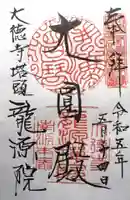 奉拝
令和五年
五月十四日
大圓殿
大徳寺塔頭
龍源院